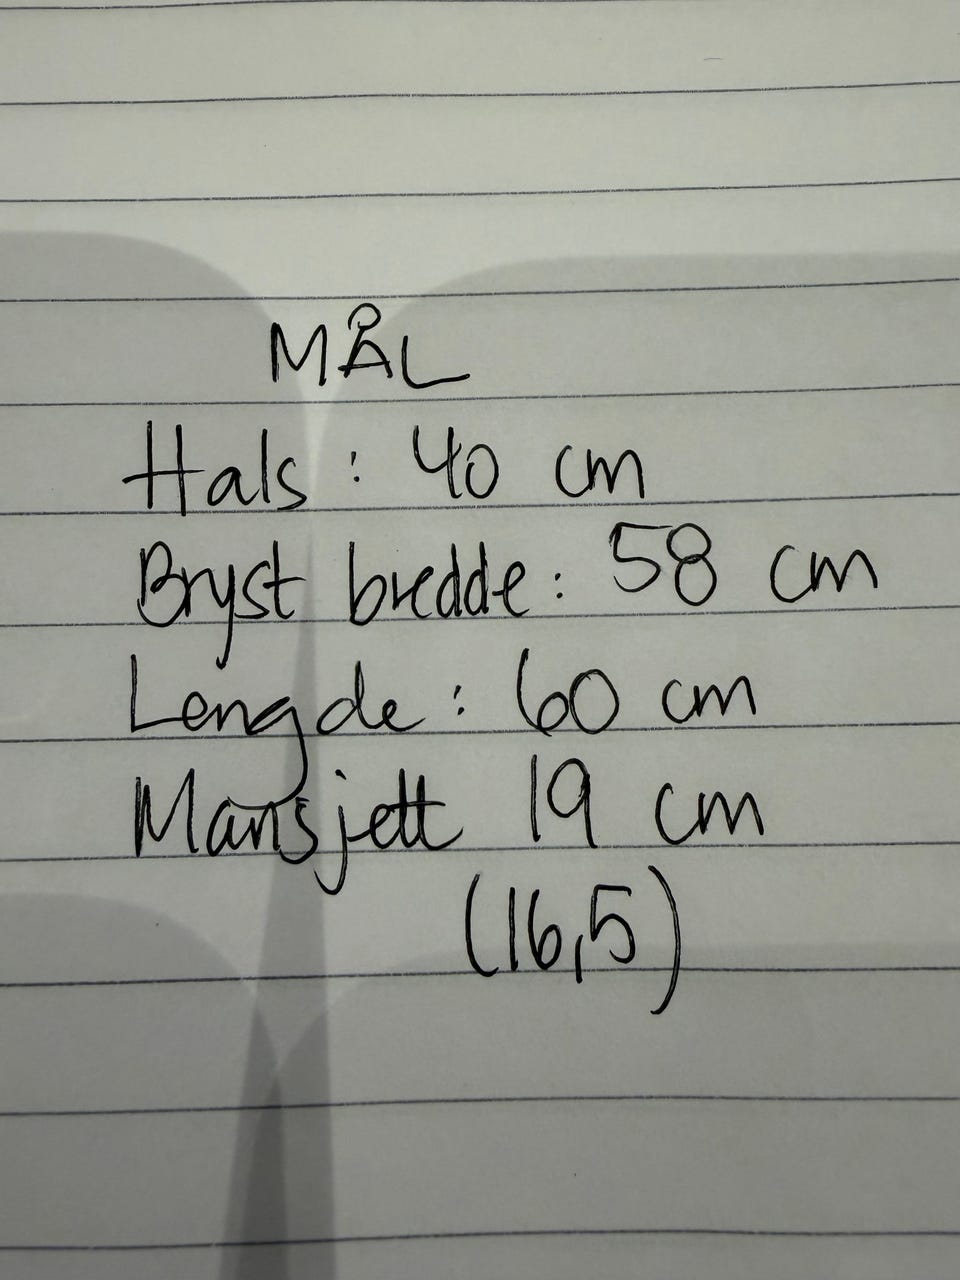 MÅL
Hals: 40 cm
Bryst bredde: 58 cm
Lengde: 60 cm
Mansjett 19 cm
(16,5)